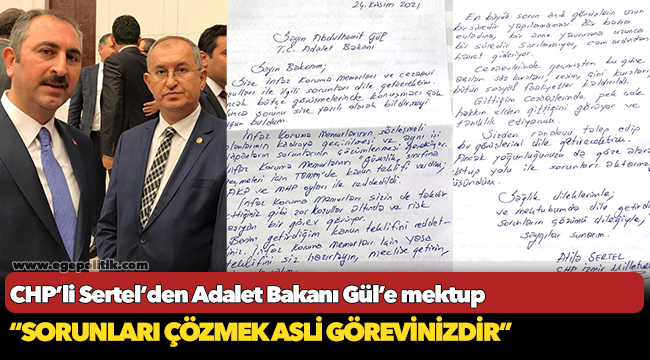 24 Kasım 2021
Sayın Abdulhamit Gül
T.C. Adalet Bakanı
Sayın Bakanım;
Size İnfaz Koruma Memurları ve cezaevi
ile ilgili sorunları dile getirecektim
bütçe görüşmelerinde konuşmacı
sorunu size yazılı olarak bildirmeyi
buldum.
İnfaz Koruma Memurlarının sözleşmeli
kadroya geçirilmesi ve aynı işi
sorunlarının çözümlenmesi gerekiyor.
İnfaz Koruma Memurlarının "güvenlik sınıfına
için TBMM'de kanun teklifi verdim,
AKP ve MHP oyları ile reddedildi.
İnfaz Koruma Memurları sizin de takdir
ettiğiniz gibi zor koşullar altında ve risk
bir görev görüyor.
Benim getirdiğim kanun teklifini reddet-
İnfaz Koruma Memurları için yasa
teklifini siz hazırlayın, meclise getirin,
En büyük sorun açık görüşlerin uzun
bir süredir yapılamaması. Bir baba
evladına, bir anne yavrusuna uzunca
bir süredir sarılamıyor, cam ardından
hasret gideriyor.
Cezaevlerinde geçmişten bu güne
saz kursları, resim, kursları,
bütün sosyal faaliyetler kaldırıldı.
Gittiğim cezaevlerinde pek çok
hakkın elden gittiğini görüyor ve
ediyorum.
Sizden randevu talep edip
bu görüşlerimi dile getirecektim.
Ancak yoğunluğunuzu da göze alarak
mektup yolu ile sorunları aktarmayı
düşündüm.
Sağlık dileklerimle;
ve mektubumda dile getirdiğim
sorunların çözümü dileğiyle,
saygılar sunarım.
Atila SERTEL
CHP İzmir Milletvekili
www.egepolitik.com
CHP'li Sertel'den Adalet Bakanı Gül'e mektup
"SORUNLARI ÇÖZMEK ASLİ GÖREVİNİZDİR"